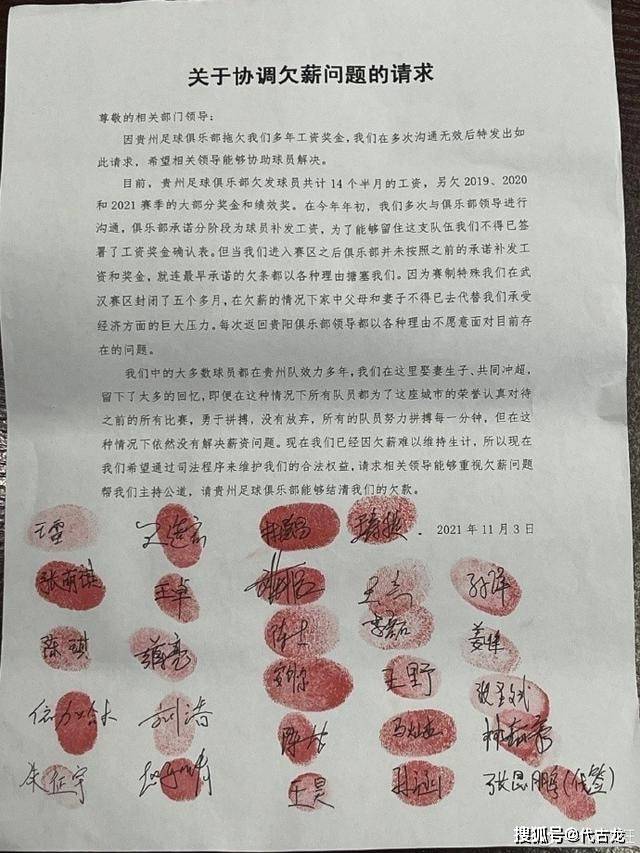 关于协调欠薪问题的请求
尊敬的相关部门领导：
因贵州足球俱乐部拖欠我们多年工资奖金，我们在多次沟通无效后特发出如
此请求，希望相关领导能够协助球员解决。
目前，贵州足球俱乐部欠发球员共计14个半月的工资，另欠2019、2020
和2021赛季的大部分奖金和绩效奖。在今年年初，我们多次与俱乐部领导进行
沟通，俱乐部承诺分阶段为球员补发工资，为了能够留住这支队伍我们不得已签
署了工资奖金确认表。但当我们进入赛区之后俱乐部并未按照之前的承诺补发工
资和奖金，就连最早承诺的欠条都以各种理由搪塞我们。因为赛制特殊我们在武
汉赛区封闭了五个多月，在欠薪的情况下家中父母和妻子不得已去代替我们承受
经济方面的巨大压力。每次返回贵阳俱乐部领导都以各种理由不愿意面对目前存
在的问题。
我们中的大多数球员都在贵州队效力多年，我们在这里娶妻生子、共同冲超，
留下了太多的回忆，即便在这种情况下所有队员都为了这座城市的荣誉认真对待
之前的所有比赛，勇于拼搏，没有放弃，所有的队员努力拼搏每一分钟，但在这
种情况下依然没有解决薪资问题。现在我们已经因欠薪难以维持生计，所以现在
我们希望通过司法程序来维护我们的合法权益，请求相关领导能够重视欠薪问题
帮我们主持公道，请贵州足球俱乐部能够结清我们的欠款。
2021年11月3日
张萌琪 王卓
陈琪
王野
刘涛
朱征宇 王昊 张昆鹏（代签）
搜狐号@代古龙